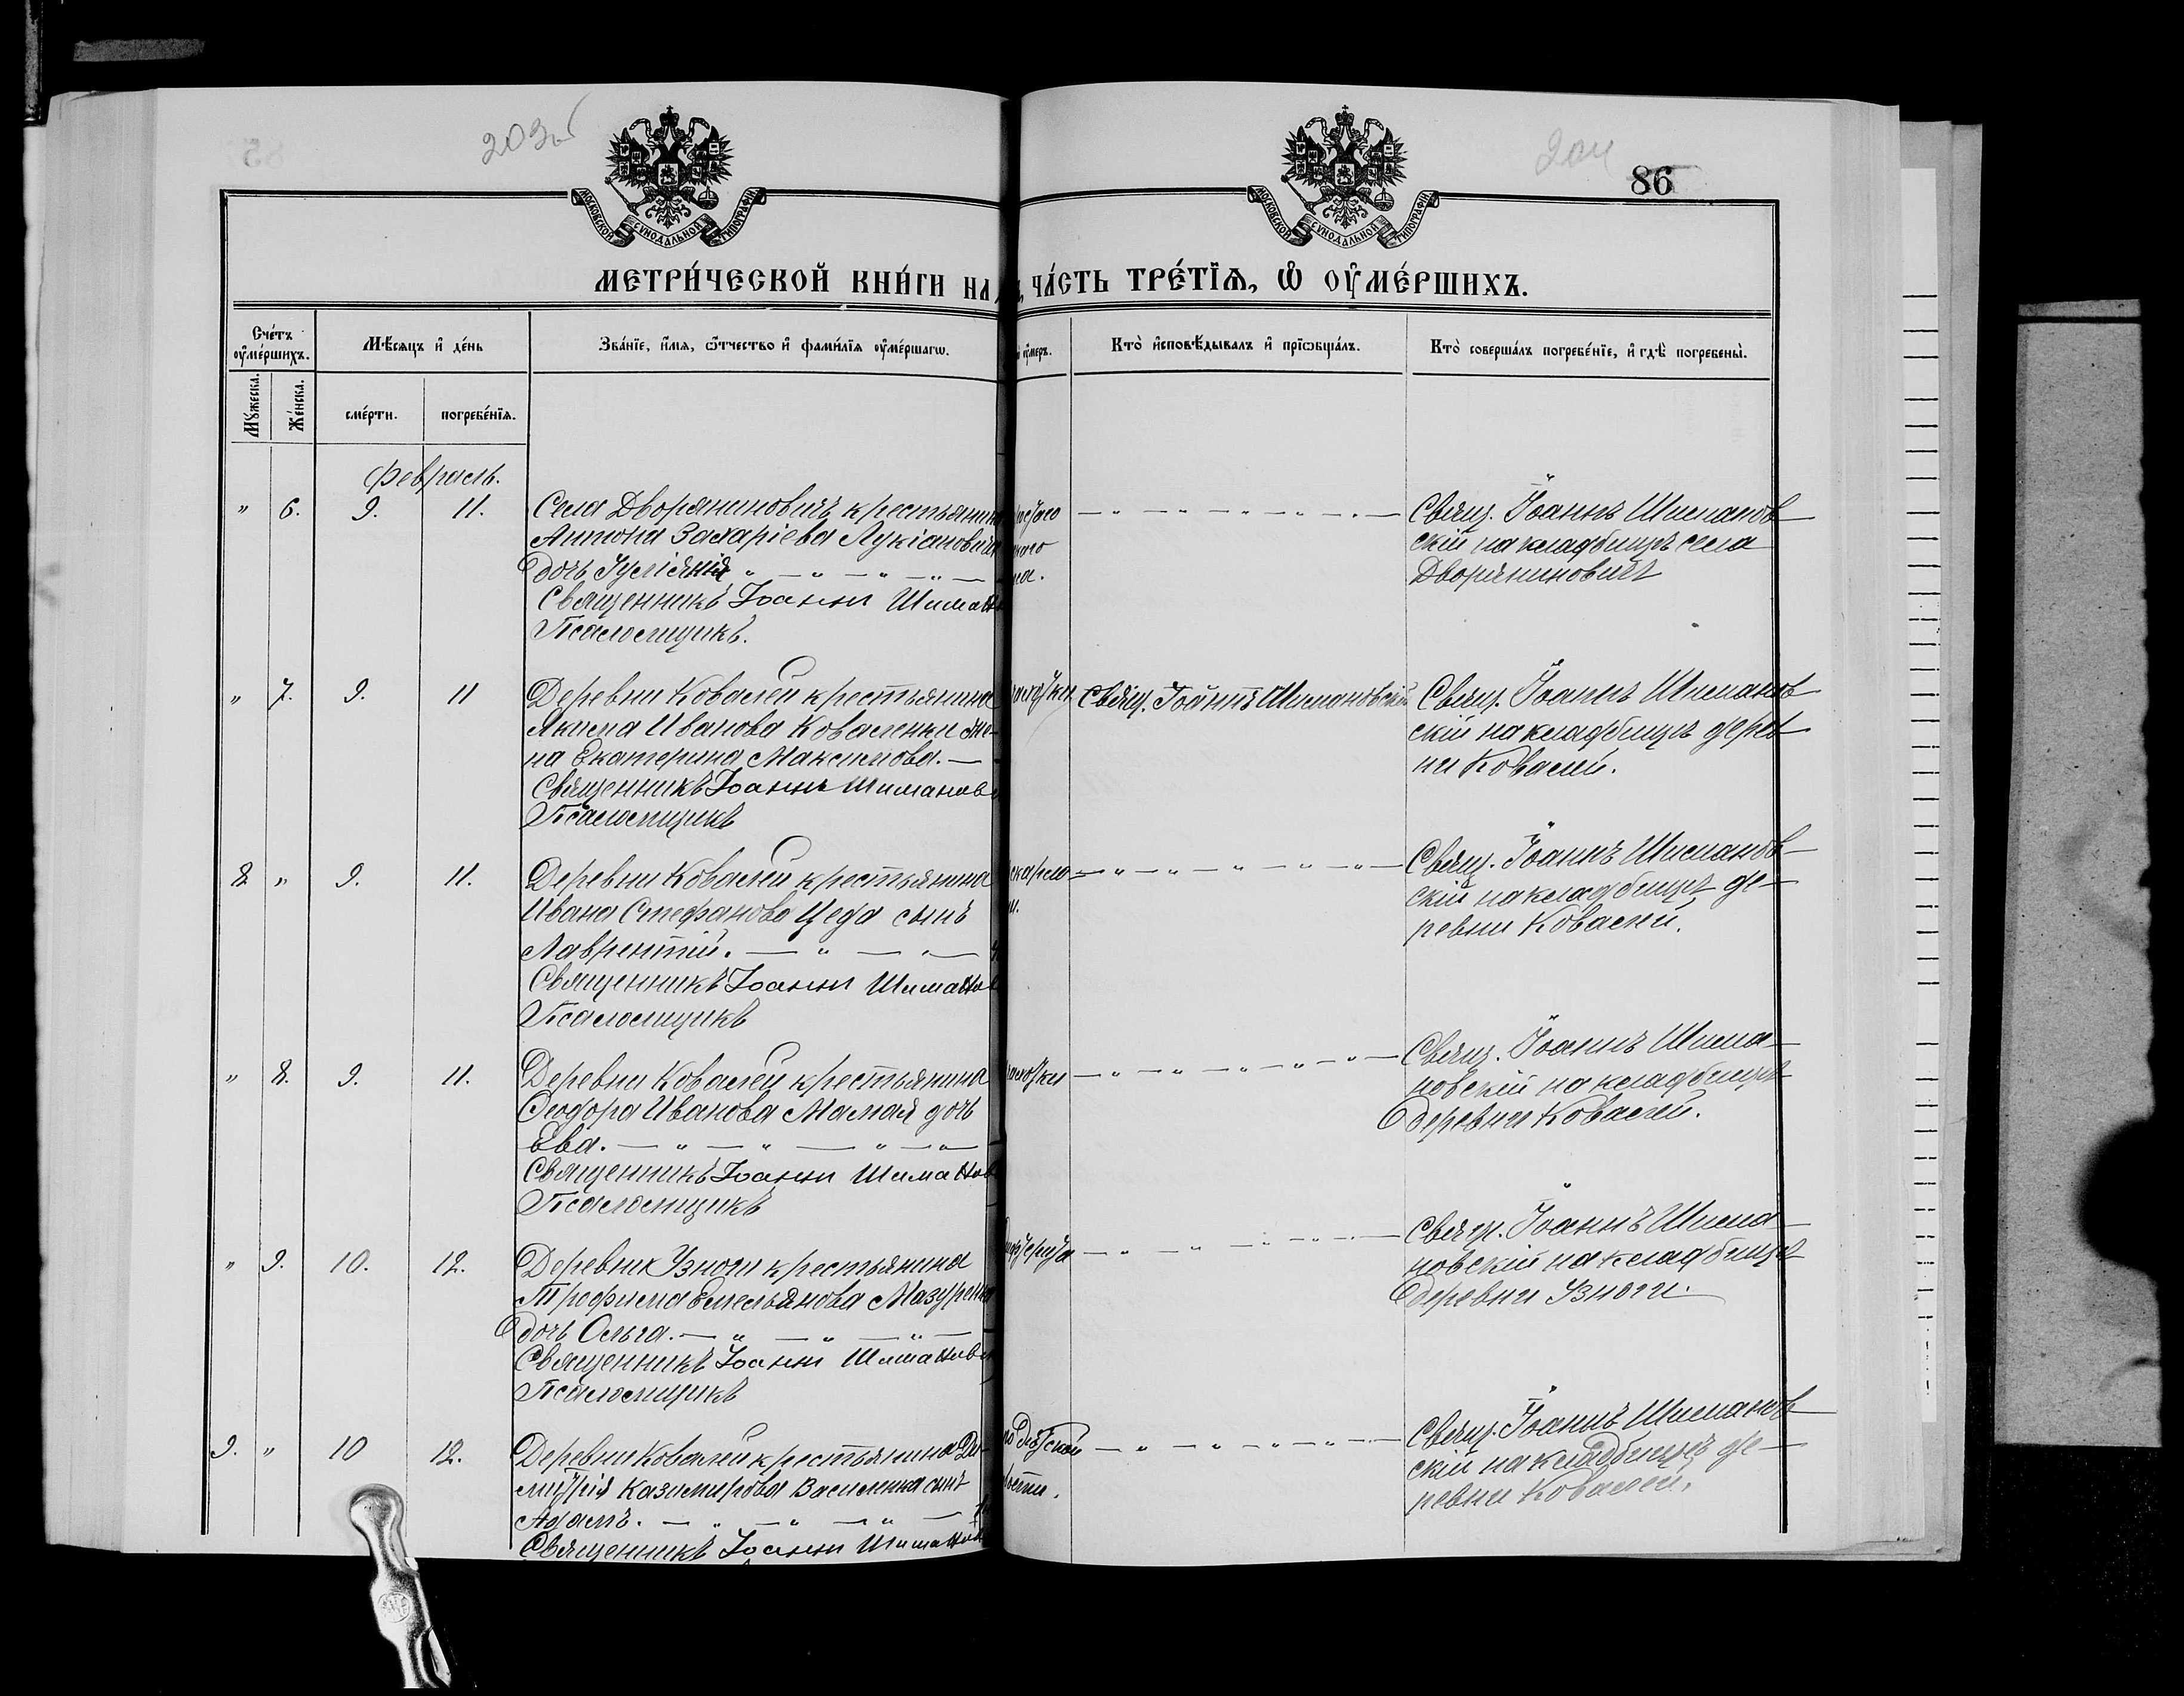 203об
204
86
МОСКОВСКОЙ СѴНОДАЛЬНОЙ ТИПОГРАФІИ
МОСКОВСКОЙ СѴНОДАЛЬНОЙ ТИПОГРАФІИ
МЕТРИ́ЧЕСКОЙ КНИ́ГИ НА
ЧА́СТЬ ТРЕ́ТЇѦ, Ѡ҆ ОУ҆МЕ́РШИХЪ.
Сче́тъ оу҆ме́ршихъ.
Мѣ́сяцъ и҆ де́нь
Зва́нїе, и҆́мѧ, ѻ҆́тчество и҆ фами́лїѧ оу҆ме́ршагѡ.
оу҆меръ.
Кто̀ и҆сповѣ́дывалъ и҆ прїѡбща́лъ.
Кто̀ соверша́лъ погребе́нїе, и҆ гдѣ̀ погребены̀.
Мꙋ́жеска.
Же́нска.
сме́рти.
погребе́нїѧ.
Февраль.
" 6. 9. 11. Села Дворяниновичъ крестьянина
Антона Захаріева Лукіановича
дочь Іуліанія " — " — " — " —
Священникъ Іоаннъ Шиманов
Псаломщикъ.
— " — " — " — " —
Свящ. Іоаннъ Шиманов
скій на кладбищѣ села
Дворяниновичъ
" 7. 9. 11 Деревни Ковалей крестьянина
Якима Иванова Коваленки же-
на Екатерина Максимова. —
Священникъ Іоаннъ Шиманов
Псаломщикъ
Свящ. Іоаннъ Шимановскій
Свящ. Іоаннъ Шиманов
скій на кладбищѣ дерев
ни Ковалей.
8 " 9. 11. Деревни Ковалей крестьянина
Ивана Стефанова Цеда сынъ
Лаврентій. — " — " —
Священникъ Іоаннъ Шиманов
Псаломщикъ
— " — " — " — " — " —
Свящ. Іоаннъ Шиманов
скій на кладбищѣ де—
ревни Ковалей.
" 8. 9. 11. Деревни Ковалей крестьянина
Ѳеодора Иванова Мамая дочь
Ева. — " — " — " — " —
Священникъ Іоаннъ Шиманов
Псаломщикъ
— " — " — " — " — " —
Свящ. Іоаннъ Шима—
новскій на кладбищѣ
деревни Ковалей.
" 9. 10. 12. Деревни Узноги крестьянина
Трофима Емельянова Мазуренка
дочь Ольга. — " — " — " —
Священникъ Іоаннъ Шиманов
Псаломщикъ
— " — " — " — " —
Свящ. Іоаннъ Шима—
новскій на кладбищѣ
деревни Узноги.
9. " 10 12. Деревни Ковалей крестьянина Ди-
митрія Казимирова Василенка сынъ
Адамъ. — " — " — " —
Священникъ Іоаннъ Шиманов
— " — " — " — " —
Свящ. Іоаннъ Шиманов
скій на кладбищѣ де—
ревни Ковалей.